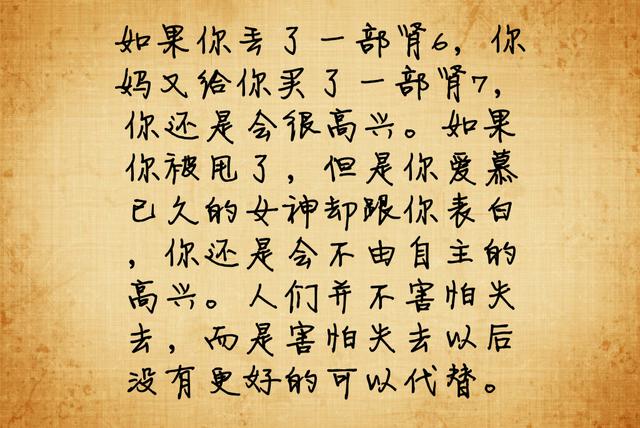 如果你丢了一部肾6，你
妈又给你买了一部肾7，
你还是会很高兴。如果
你被甩了，但是你爱慕
已久的女神却跟你表白
，你还是会不由自主的
高兴。人们并不害怕失
去，而是害怕失去以后
没有更好的可以代替。